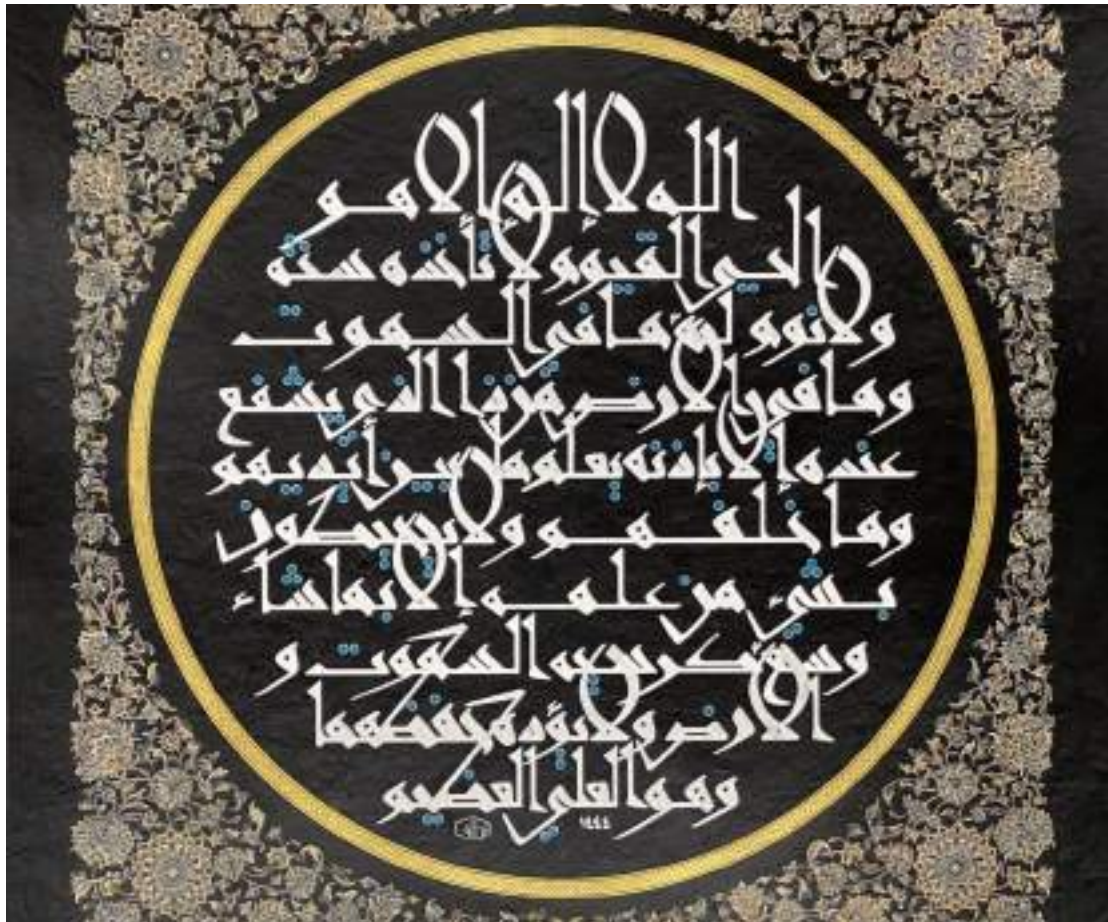 الله لا إله إلا هو
الحي القيوم لا تأخذه سنة
ولا نوم له ما في السموت
وما في الارض من ذا الذي يشفع
عنده إلا بإذنه يعلم ما بين أيديهم
وما خلفهم ولا يحيطون
بشيء من علمه إلا بما شاء
وسع كرسيه السموت و
الارض ولا يؤده حفظهما
وهو العلي العظيم
١٤٤٤